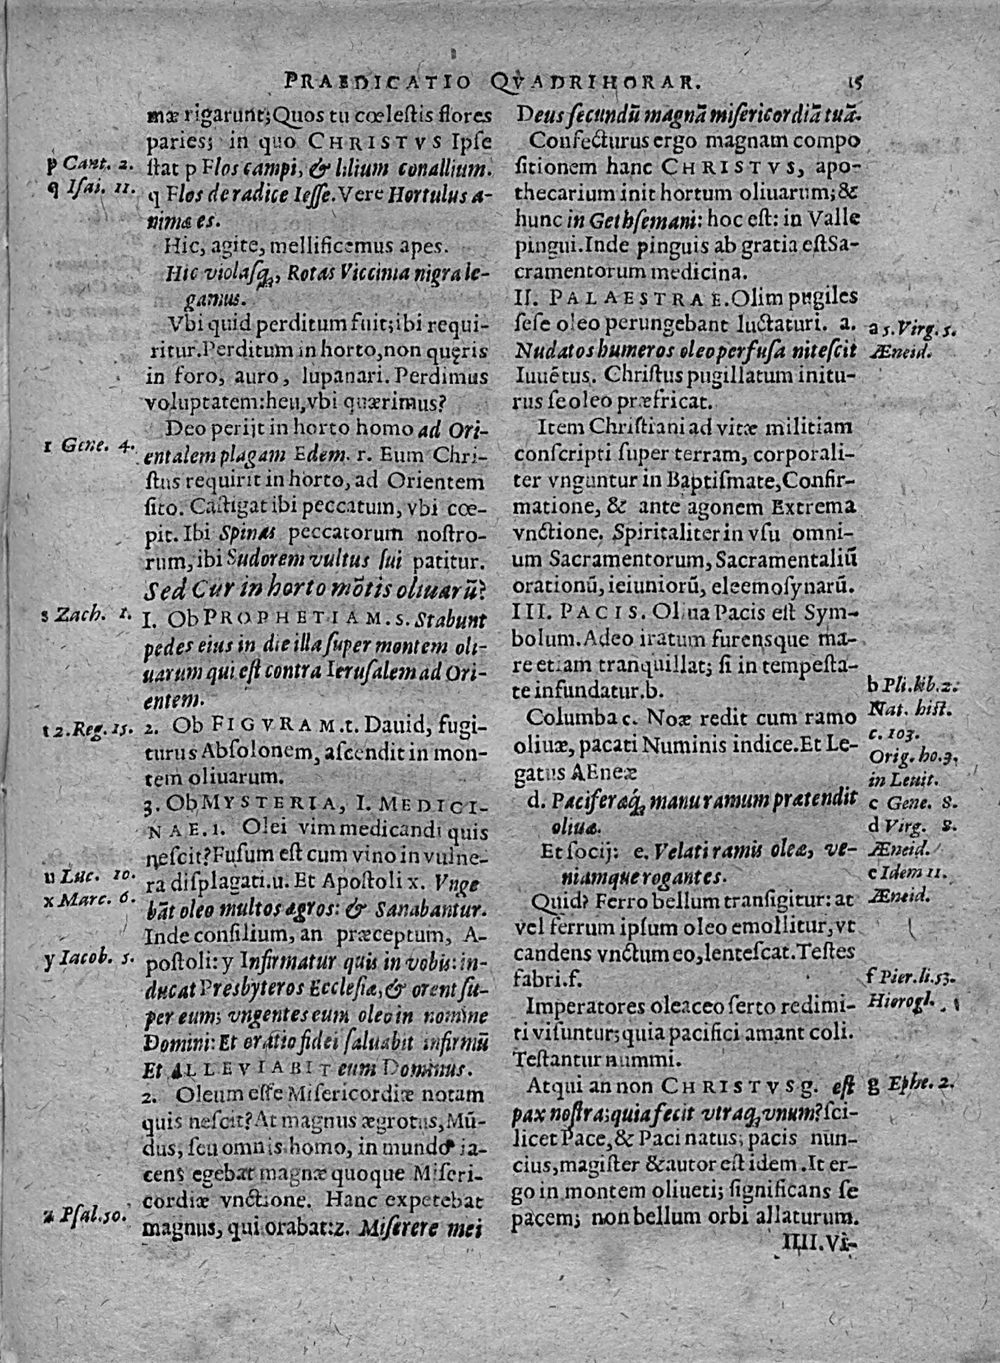 PRAEDICATIO QVADRIHORAR. 15
mæ rigarunt; Quos tu cœlestis flores
paries; in quo CHRISTVS Ipse
p Cant. 2.
stat p Flos campi, & lilium conallium.
q Isai. 11.
q Flos de radice Iesse. Vere Hortulus a-
nimæ es.
Hic, agite, mellificemus apes.
Hic violasq́, Rotas Viccinia nigra le-
gamus.
Vbi quid perditum fuit; ibi requi-
ritur. Perditum in horto, non quęris
in foro, auro, lupanari. Perdimus
voluptatem: heu, vbi quærimus?
Deo perijt in horto homo ad Ori-
r Gene. 4.
entalem plagam Edem. r. Eum Chri-
stus requirit in horto, ad Orientem
sito. Castigat ibi peccatum, vbi cœ-
pit. Ibi Spinas peccatorum nostro-
rum, ibi Sudorem vultus sui patitur.
Sed Cur in horto mõtis oliuarũ?
s Zach. 1.
I. Ob PROPHETIAM. s. Stabunt
pedes eius in die illa super montem oli-
uarum qui est contra Ierusalem ad Ori-
entem.
t 2. Reg. 15.
2. Ob FIGVRAM. t. Dauid, fugi-
turus Absolonem, ascendit in mon-
tem oliuarum.
3. Ob MYSTERIA, I. MEDICI-
NAE. 1. Olei vim medicandi quis
nescit? Fusum est cum vino in vulne-
u Luc. 10.
ra displagati. u. Et Apostoli x. Vnge
x Marc. 6.
bãt oleo multos ægros: & Sanabantur.
Inde consilium, an præceptum, A-
y Iacob. 5.
postoli: y Infirmatur quis in vobis: in-
ducat Presbyteros Ecclesiæ, & orent su-
per eum; vngentes eum oleo in nomine
Domini: Et oratio fidei saluabit infirmũ
Et ALLEVIABIT eum Dominus.
2. Oleum esse Misericordiæ notam
quis nescit? At magnus ægrotus, Mũ-
dus, seu omnis homo, in mundo ia-
cens egebat magnæ quoque Miseri-
cordiæ vnctione. Hanc expetebat
z Psal. 50.
magnus, qui orabat: z. Miserere mei
Deus secundũ magnã misericordiã tuã.
Confecturus ergo magnam compo
sitionem hanc CHRISTVS, apo-
thecarium init hortum oliuarum; &
hunc in Gethsemani: hoc est: in Valle
pingui. Inde pinguis ab gratia est Sa-
cramentorum medicina.
II. PALAESTRAE. Olim pugiles
sese oleo perungebant luctaturi. a.
a 5. Virg. 5.
Nudatos humeros oleo perfusa nitescit
Æneid.
Iuuẽtus. Christus pugillatum initu-
rus se oleo præfricat.
Item Christiani ad vitæ militiam
conscripti super terram, corporali-
ter vnguntur in Baptismate, Confir-
matione, & ante agonem Extrema
vnctione. Spiritaliter in vsu omni-
um Sacramentorum, Sacramentaliũ
orationũ, ieiuniorũ, eleemosynarũ.
III. PACIS. Oliua Pacis est Sym-
bolum. Adeo iratum furensque ma-
re etiam tranquillat; si in tempesta-
te infundatur. b.
b Pli. lib. 2.
Nat. hist.
c. 103.
Orig. ho. 3.
in Leuit.
Columba c. Noæ redit cum ramo
oliuæ, pacati Numinis indice. Et Le-
gatus AEneæ
c Gene. 8.
d. Paciferæq́, manu ramum prætendit
oliuæ.
d Virg. 8.
Æneid.
Et socij: e. Velati ramis oleæ, ve-
niamque rogantes.
e Idem 11.
Æneid.
Quid? Ferro bellum transigitur: at
vel ferrum ipsum oleo emollitur, vt
candens vnctum eo, lentescat. Testes
fabri. f.
f Pier. li. 53.
Hierogl.
Imperatores oleaceo serto redimi-
ti visuntur; quia pacifici amant coli.
Testantur nummi.
Atqui an non CHRISTVS g. est
g Ephe. 2.
pax nostra: quia fecit vtraq́, vnum? sci-
licet Pace, & Paci natus; pacis nun-
cius, magister & autor est idem. It er-
go in montem oliueti; significans se
pacem; non bellum orbi allaturum.
IIII. Vi-